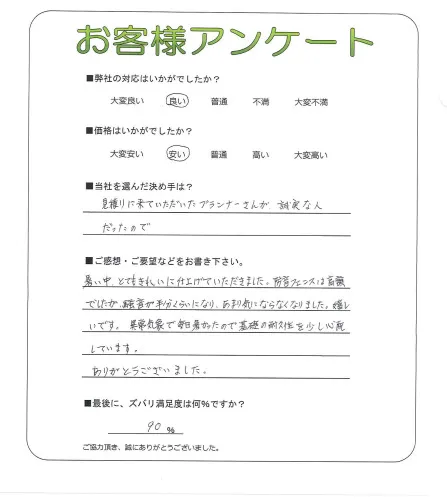 お客様アンケート
■弊社の対応はいかがでしたか？
大変良い 良い 普通 不満 大変不満
■価格はいかがでしたか？
大変安い 安い 普通 高い 大変高い
■当社を選んだ決め手は？
見積りに来ていただいたプランナーさんが、誠実な人
だったので
■ご感想・ご要望などをお書き下さい。
暑い中、とてもきれいに仕上げていただきました。防音フェンスは
でしたが、騒音が半分くらいになり、あまり気にならなくなりました。嬉し
いです。異常気象で毎日暑かったので基礎の耐久性を少し心配
しています。
ありがとうございました。
■最後に、ズバリ満足度は何％ですか？
90 %
ご協力頂き、誠にありがとうございました。